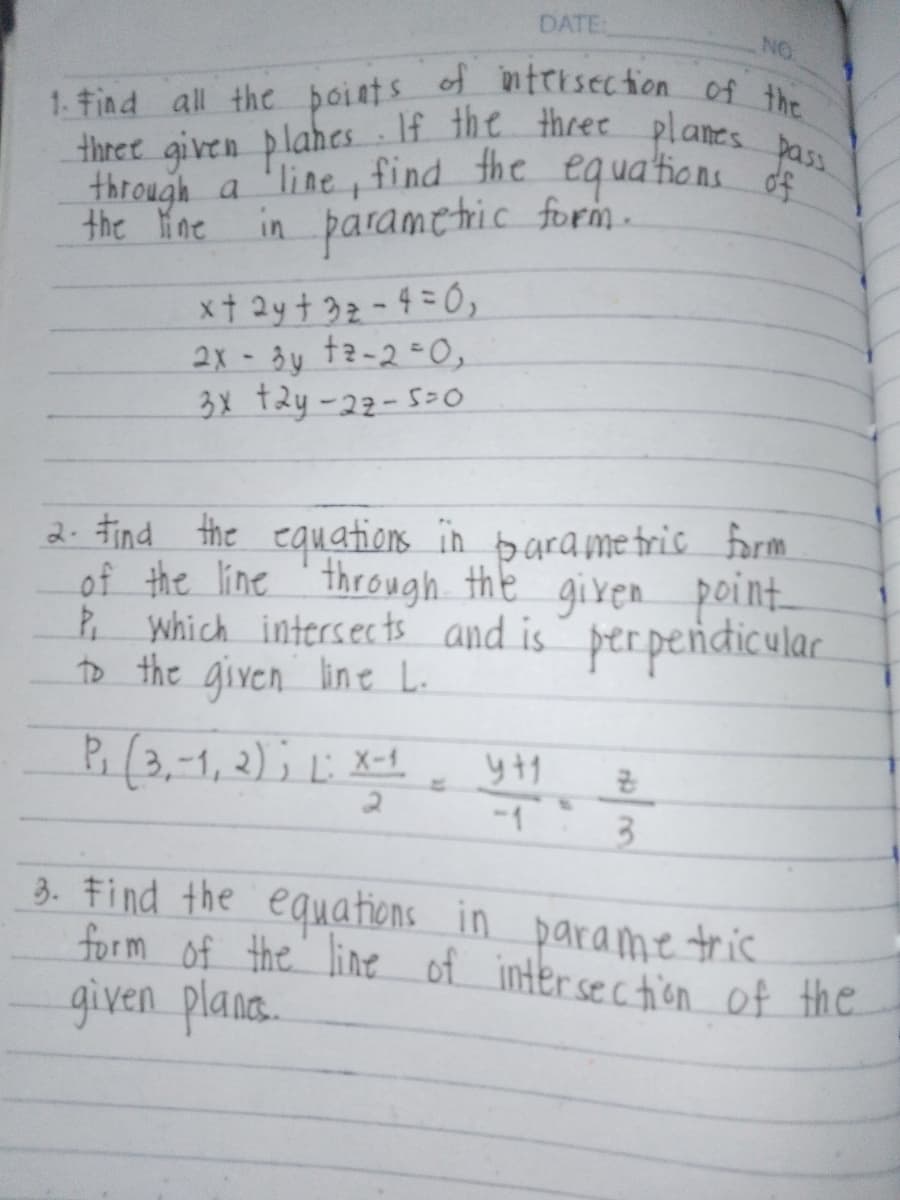 DATE:
NO.
1. Find all the points of intersection of the
three given planes. If the three planes pass
through a line, find the equations of
the line in parametric form.
x + 2y + 3z - 4 = 0,
2x - 3y + z - 2 = 0,
3x + 2y - 2z - 5 = 0
2. Find the equations in parametric form
of the line through the given point
P₁ which intersects and is perpendicular
to the given line L.
P₁ (3, -1, 2) ; L: x-1/2 = y+1/-1 = z/3
3. Find the equations in parametric
form of the line of intersection of the
given planes.